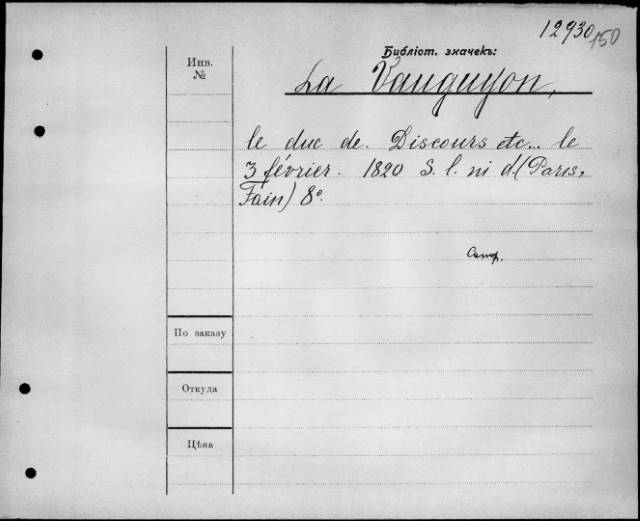 12930
150
Библіот. значекъ:
Инв.
№
La Vauguyon,
le duc de. Discours etc... le
3 février. 1820 S. l. ni d. (Paris,
Fain) 8º.
По заказу
Откуда
Цѣна